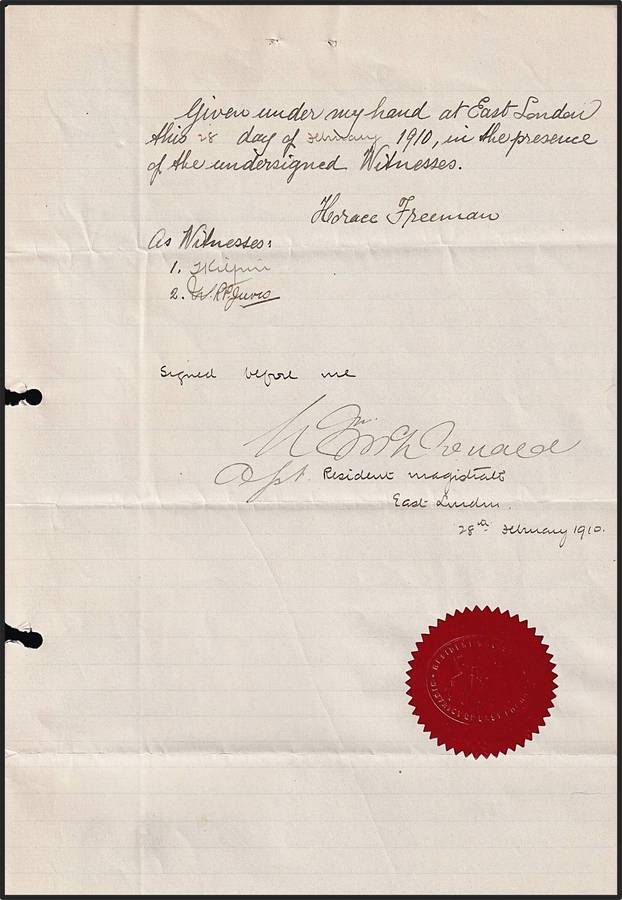 Given under my hand at East London
this 28 day of February 1910, in the presence
of the undersigned Witnesses.
Horace Freeman
As Witnesses:
1.
2. W.R.P.
Signed before me
McDonald
Asst. Resident magistrate
East London.
28th February 1910.
RESIDENT
DISTRICT OF EAST LONDON